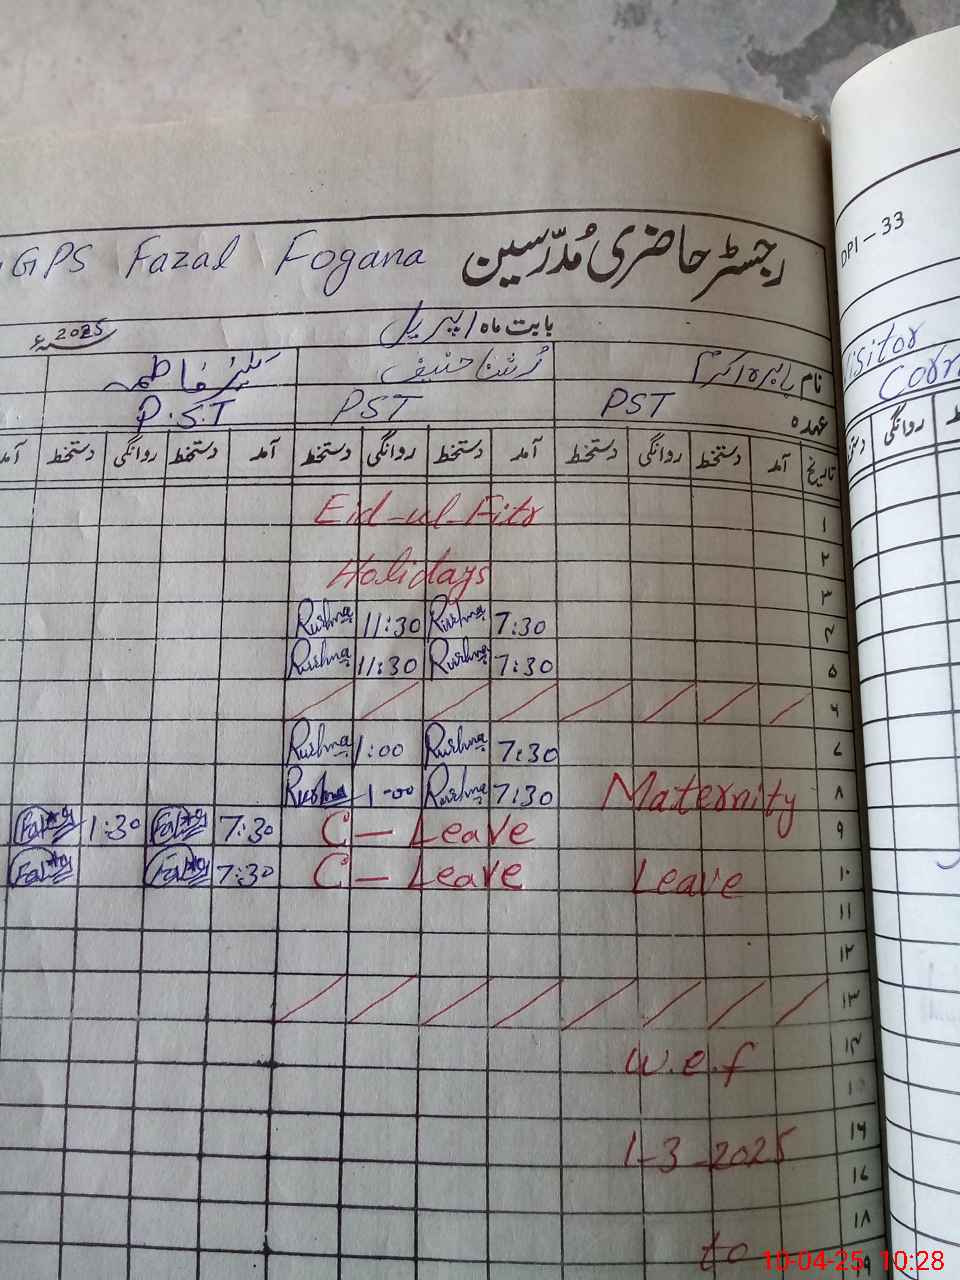 GGPS Fazal Fogana رجسٹر حاضری مُدرّسین
بابت ماہ اپریل سنہ 2025ء
نام ہاجرہ اکرم رُشنا حنیف کنیز فاطمہ
عہدہ PST PST P.S.T
تاریخ آمد دستخط روانگی دستخط آمد دستخط روانگی دستخط آمد دستخط روانگی دستخط آمد
۱ Eid-ul-Fitr
۲
۳ Holidays
۴ 7:30 Rushna 11:30 Rushna
۵ 7:30 Rushna 11:30 Rushna
۶
۷ 7:30 Rushna 1:00 Rushna
۸ Maternity 7:30 Rushna 1-00 Rushna
۹ C - Leave 7:30 1:30
۱۰ Leave C - Leave 7:30
۱۱
۱۲
۱۳
۱۴ w.e.f
۱۵
۱۶ 1-3-2025
۱۷
۱۸
to
DPI - 33
Visitor
روانگی
10-04-25 10:28